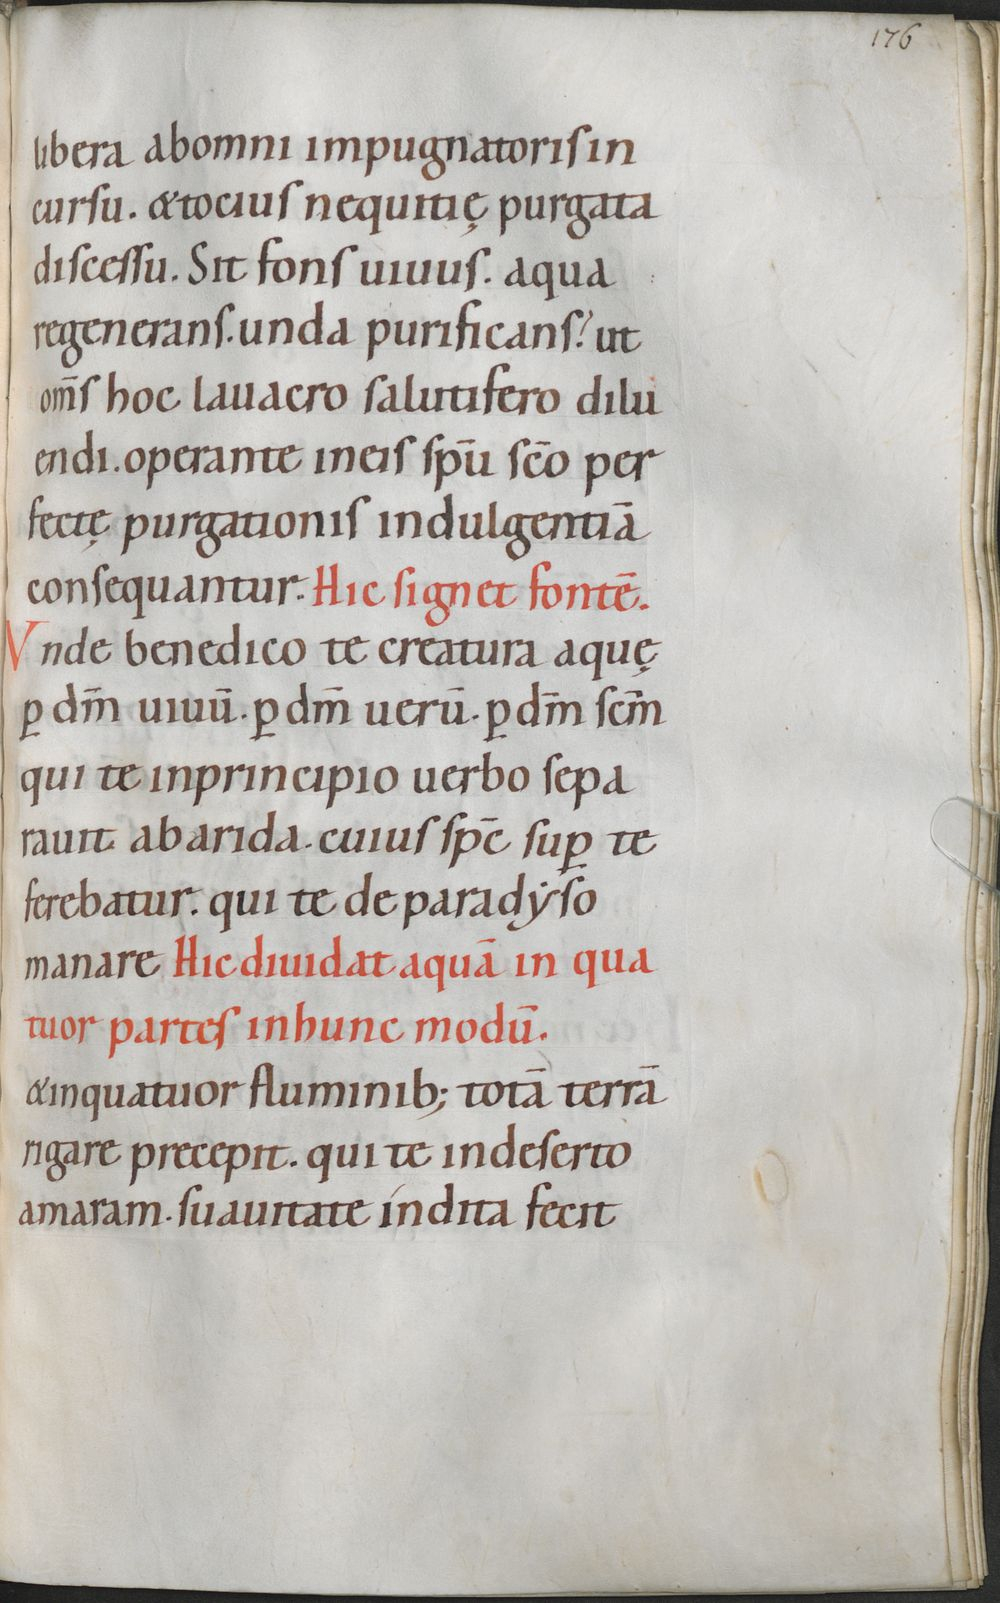 176
libera abomni impugnatoris in
cursu. &tocius nequitię purgata
discessu. Sit fons uiuus. aqua
regenerans. unda purificans. ut
om̄s hoc lauacro salutifero dilu
endi. operante ineis sp̄u sc̄o per
fectę purgationis indulgentiā
consequantur. Hic signet fontē.
Vnde benedico te creatura aquę
ꝑ dm̄ uiuū. ꝑ dm̄ uerū. ꝑ dm̄ scm̄
qui te inprincipio uerbo sepa
rauit ab arida. cuius sp̄c suꝑ te
ferebatur. qui te de paradẏso
manare Hic diuidat aquā in qua
tuor partes inhunc modū.
&inquatuor fluminib; totā terrā
rigare precepit. qui te indeserto
amaram. suauitate índita fecit